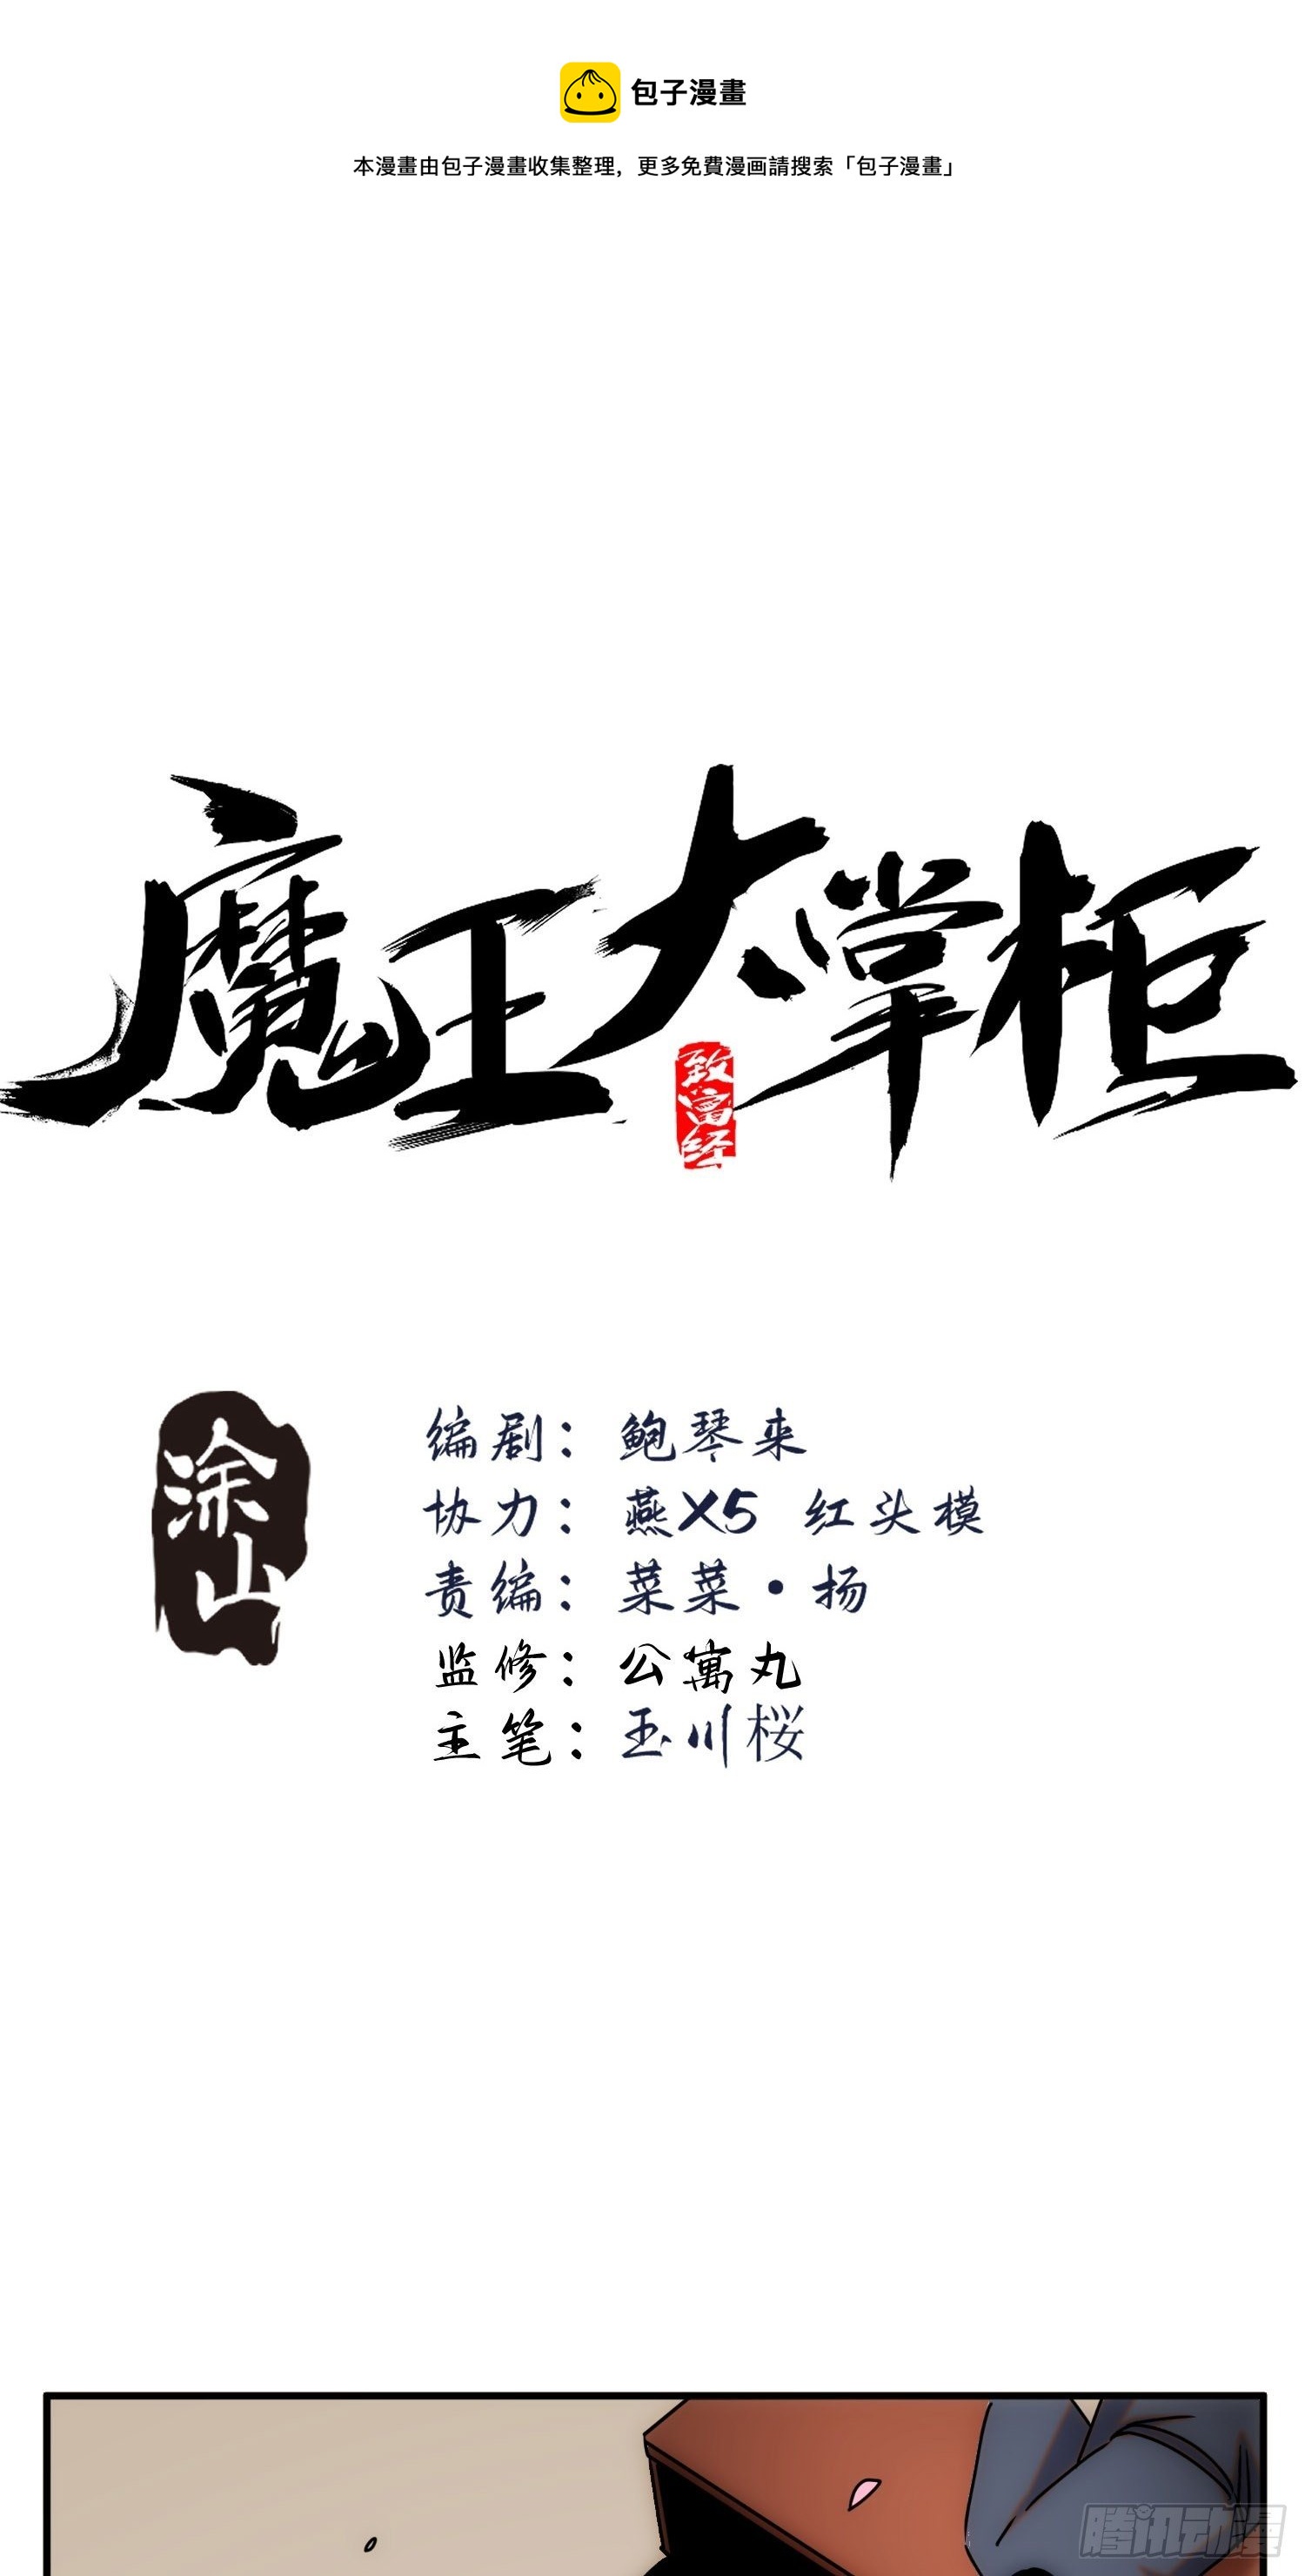 包子漫畫
本漫畫由包子漫畫收集整理，更多免費漫画請搜索「包子漫畫」
魔王大掌柜
致富经
涂山
编剧：鲍琴来
协力：燕X5 红头模
责编：菜菜·扬
监修：公寓丸
主笔：玉川桜
腾讯动漫